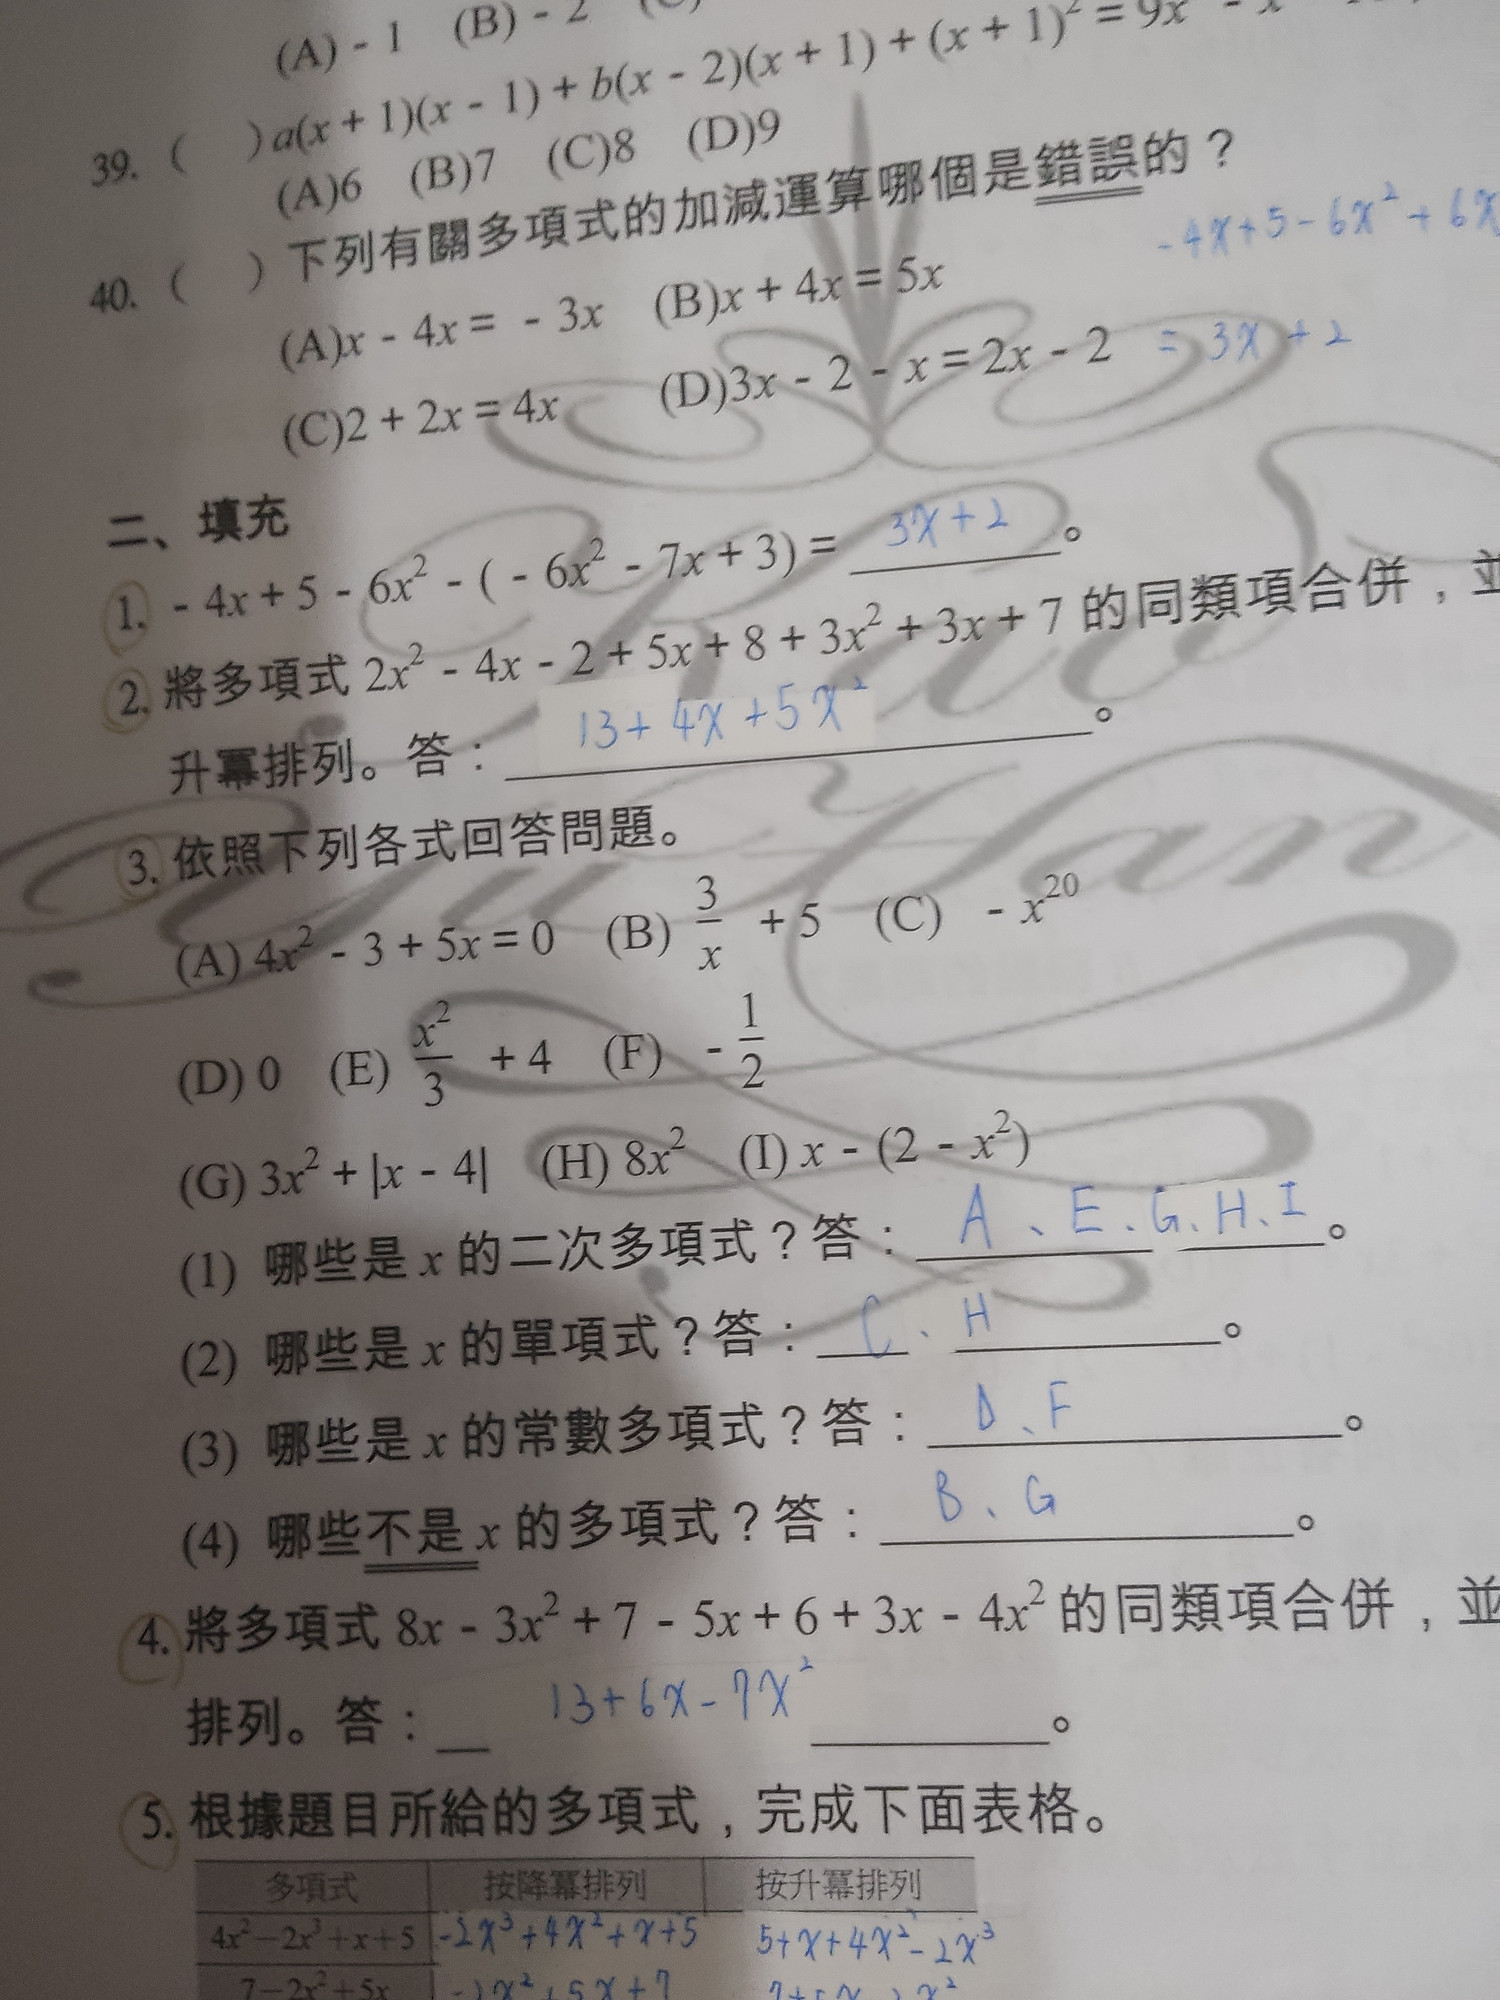 (A) - 1 (B) - 2
39. ( ) a(x + 1)(x - 1) + b(x - 2)(x + 1) + (x + 1)² = 9x
(A)6 (B)7 (C)8 (D)9
40. ( ) 下列有關多項式的加減運算哪個是錯誤的？
-4x+5-6x²+6x
(A)x - 4x = - 3x (B)x + 4x = 5x
(C)2 + 2x = 4x (D)3x - 2 - x = 2x - 2 = 3x + 2
二、填充
1. - 4x + 5 - 6x² - ( - 6x² - 7x + 3) = 3x+2。
2. 將多項式 2x² - 4x - 2 + 5x + 8 + 3x² + 3x + 7 的同類項合併，並
升冪排列。答：13+4x+5x²。
3. 依照下列各式回答問題。
(A) 4x² - 3 + 5x = 0 (B) 3/x + 5 (C) - x²⁰
(D) 0 (E) x²/3 + 4 (F) - 1/2
(G) 3x² + |x - 4| (H) 8x² (I) x - (2 - x²)
(1) 哪些是 x 的二次多項式？答：A、E、G、H、I。
(2) 哪些是 x 的單項式？答：C、H。
(3) 哪些是 x 的常數多項式？答：D、F。
(4) 哪些不是 x 的多項式？答：B、G。
4. 將多項式 8x - 3x² + 7 - 5x + 6 + 3x - 4x² 的同類項合併，並
排列。答：13+6x-7x²。
5. 根據題目所給的多項式，完成下面表格。
多項式 按降冪排列 按升冪排列
4x²-2x³+x+5 -2x³+4x²+x+5 5+x+4x²-2x³
7-2x²+5x -2x²+5x+7